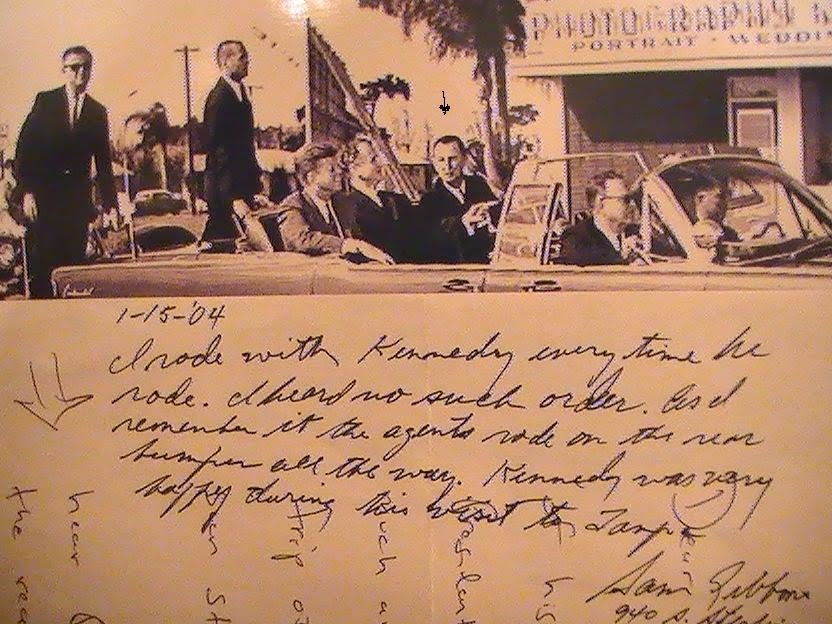 PHOTOGRAPHY &
PORTRAIT • WEDDIN
1-15-'04
I rode with Kennedy every time he
rode. I heard no such order. As I
remember it the agents rode on the rear
bumper all the way. Kennedy was very
happy during his visit to Tampa.
Sam Gibbons
940 S.
hear
the
trip
his